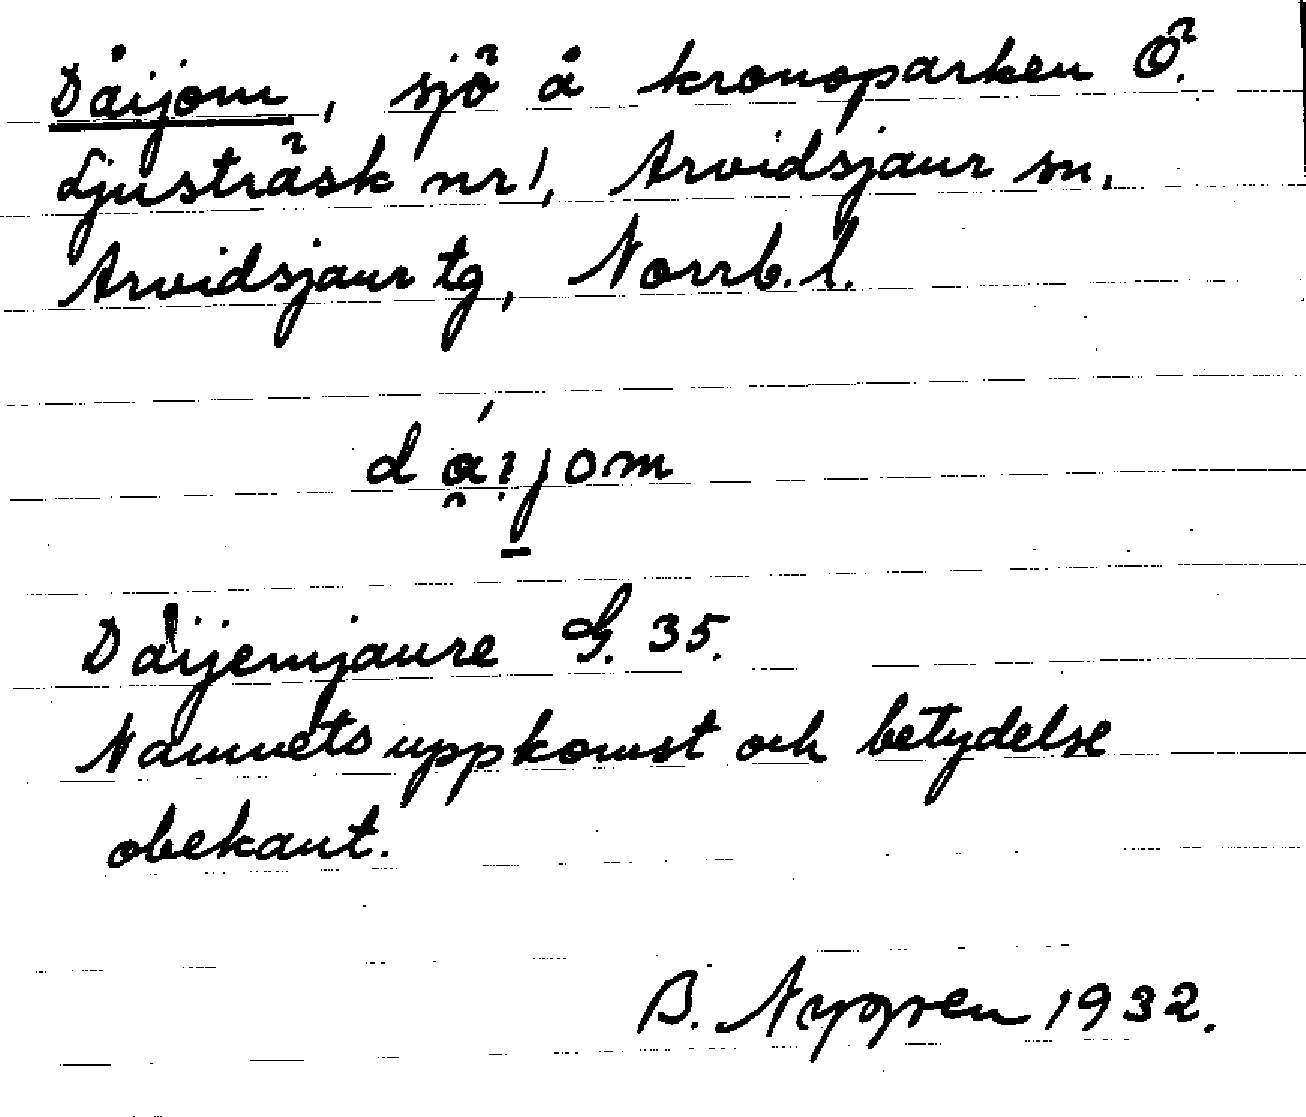 Dåijom, sjö å kronoparken Ö.
Ljusträsk nr 1, Arvidsjaur sn,
Arvidsjaur tg, Norrb. l.
dáijom
Daijemjaure G. 35.
Namnets uppkomst och betydelse
obekant.
B. Nygren 1932.